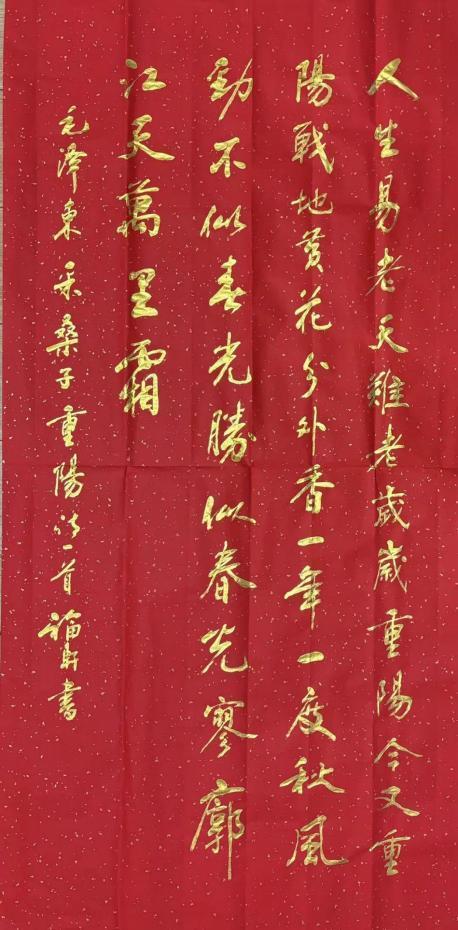 人生易老天難老歲歲重陽今又重
陽戰地黄花分外香一年一度秋風
勁不似春光勝似春光寥廓
江天萬里霜
毛澤東采桑子重陽詩一首 書